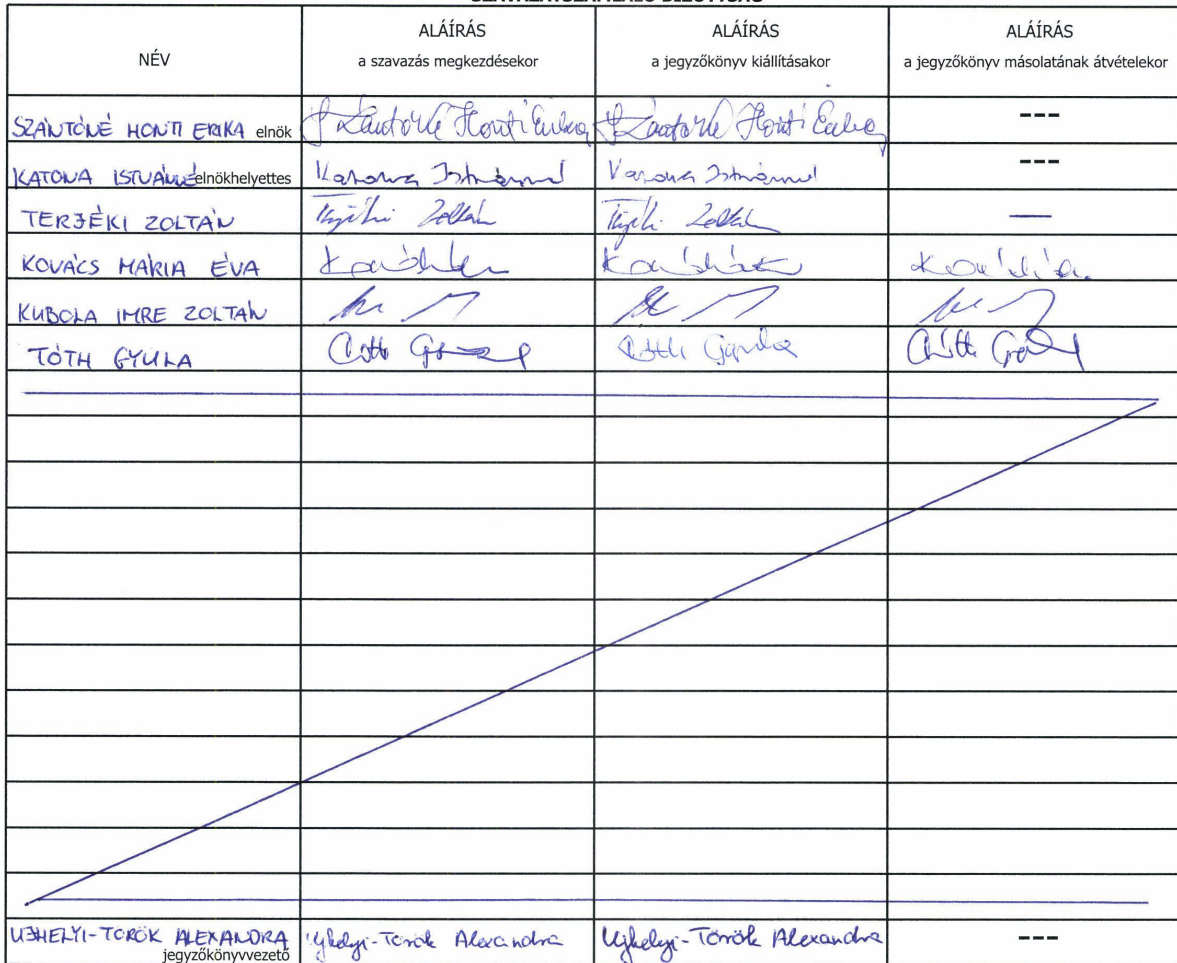 NÉV
ALÁÍRÁS
a szavazás megkezdésekor
ALÁÍRÁS
a jegyzőkönyv kiállításakor
ALÁÍRÁS
a jegyzőkönyv másolatának átvételekor
SZÁNTÓNÉ HONTI ERIKA elnök Szántóné Honti Erika Szántóné Honti Erika ---
KATONA ISTVÁNNÉ elnökhelyettes Katona Istvánné Katona Istvánné ---
TERJÉKI ZOLTÁN Terjéki Zoltán Terjéki Zoltán —
KOVÁCS MÁRIA ÉVA
KUBOLA IMRE ZOLTÁN
TÓTH GYULA Tóth Gyula Tóth Gyula Tóth Gyula
UJHELYI-TÖRÖK ALEXANDRA Ujhelyi-Török Alexandra Ujhelyi-Török Alexandra ---
jegyzőkönyvvezető